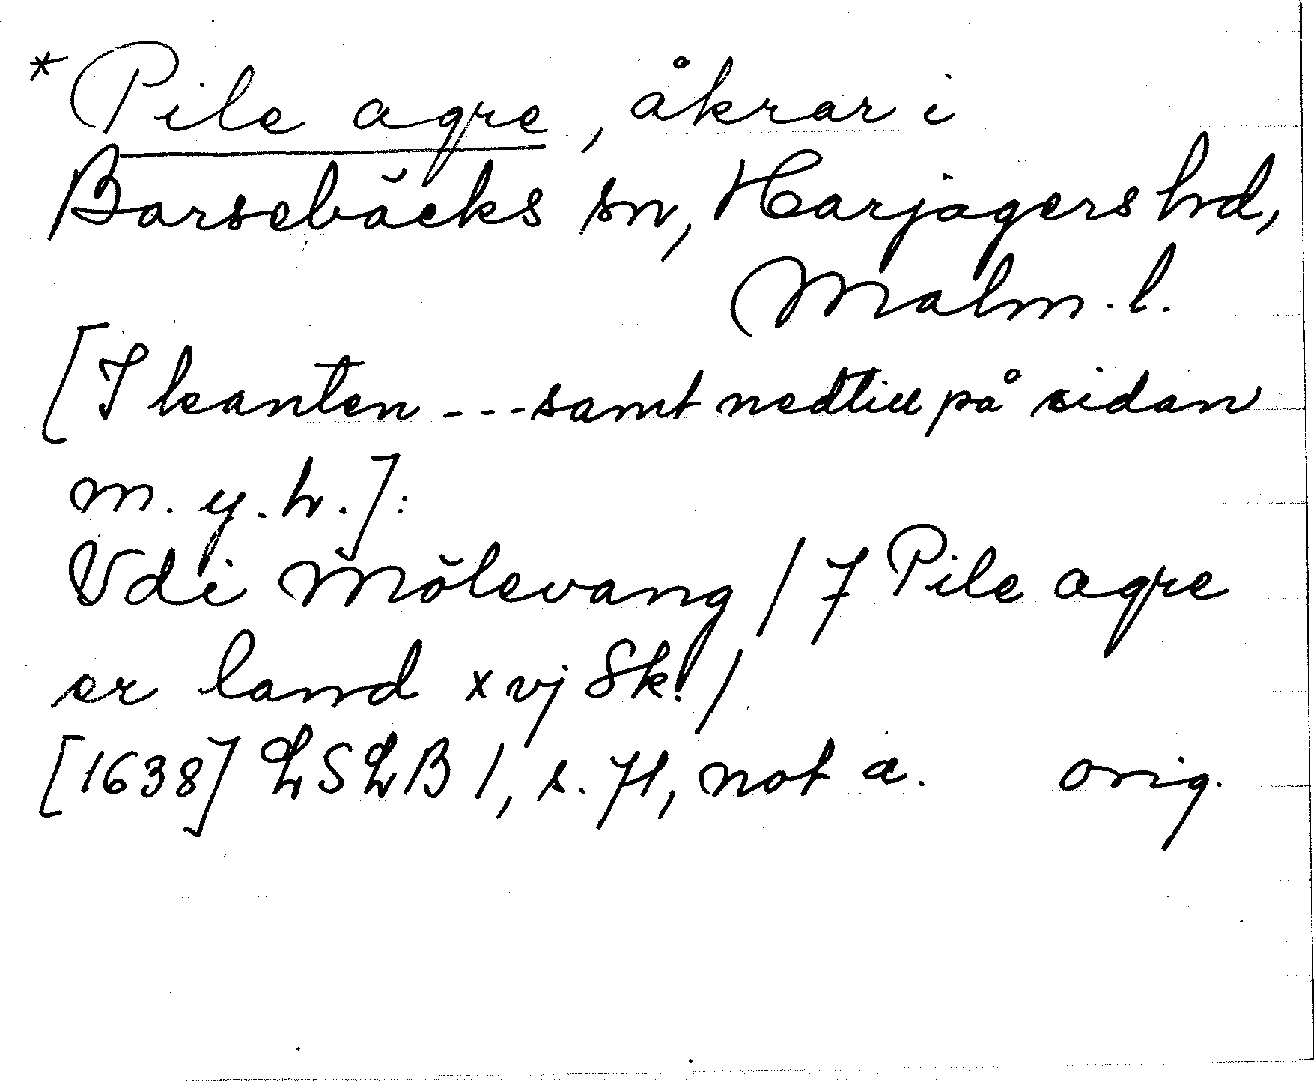 * Pile agre, åkrar i
Barsebäcks sn, Harjagers hd,
Malm. l.
[I kanten --- samt nedtill på sidan
m. y. h.]:
Vdi Mölevang / 7 Pile agre
er land xvj Sk. /
[1638] LSLB 1, s. 71, not a. orig.